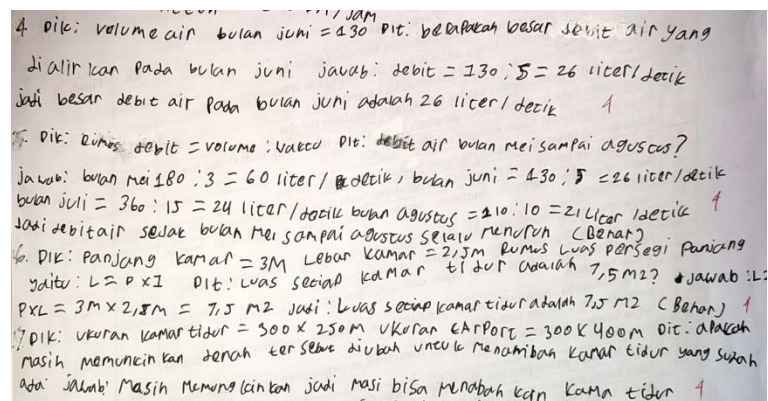 /jam
4. Dik: volume air bulan juni = 130 Dit: berapakah besar debit air yang
di alir kan pada bulan juni jawab: debit = 130 : 5 = 26 liter/detik
jadi besar debit air pada bulan juni adalah 26 liter/detik 1
5. Dik: Rumos debit = volume : waktu Dit: debit air bulan Mei sampai agustus?
jawab: bulan mei 180 : 3 = 60 liter/detik, bulan juni = 130 : 5 = 26 liter/detik
bulan juli = 360 : 15 = 24 liter/detik bulan agustus = 210 : 10 = 21 Liter/detik 1
Jadi debit air sejak bulan Mei sampai agustus selalu menurun (Benar)
6. DIK: Panjang kamar = 3M Lebar kamar = 2,5m Rumus Luas persegi Panjang
yaitu: L = P x l Dit: Luas setiap kamar tidur adalah 7,5 m2? jawab: L=
PXL = 3M x 2,5m = 7,5 m2 Jadi: Luas setiap kamar tidur adalah 7,5 m2 (Benar) 1
7 DIK: Ukuran kamar tidur = 300 x 250M Ukuran CArPorT = 300 x 400m Dit: apakah
masih memuncin kan denah ter sebut diubah untuk menambahan kamar tidur yang sudah
ada jawab: Masih Memung kin kan jadi masi bisa menabah kan kama tidur 1